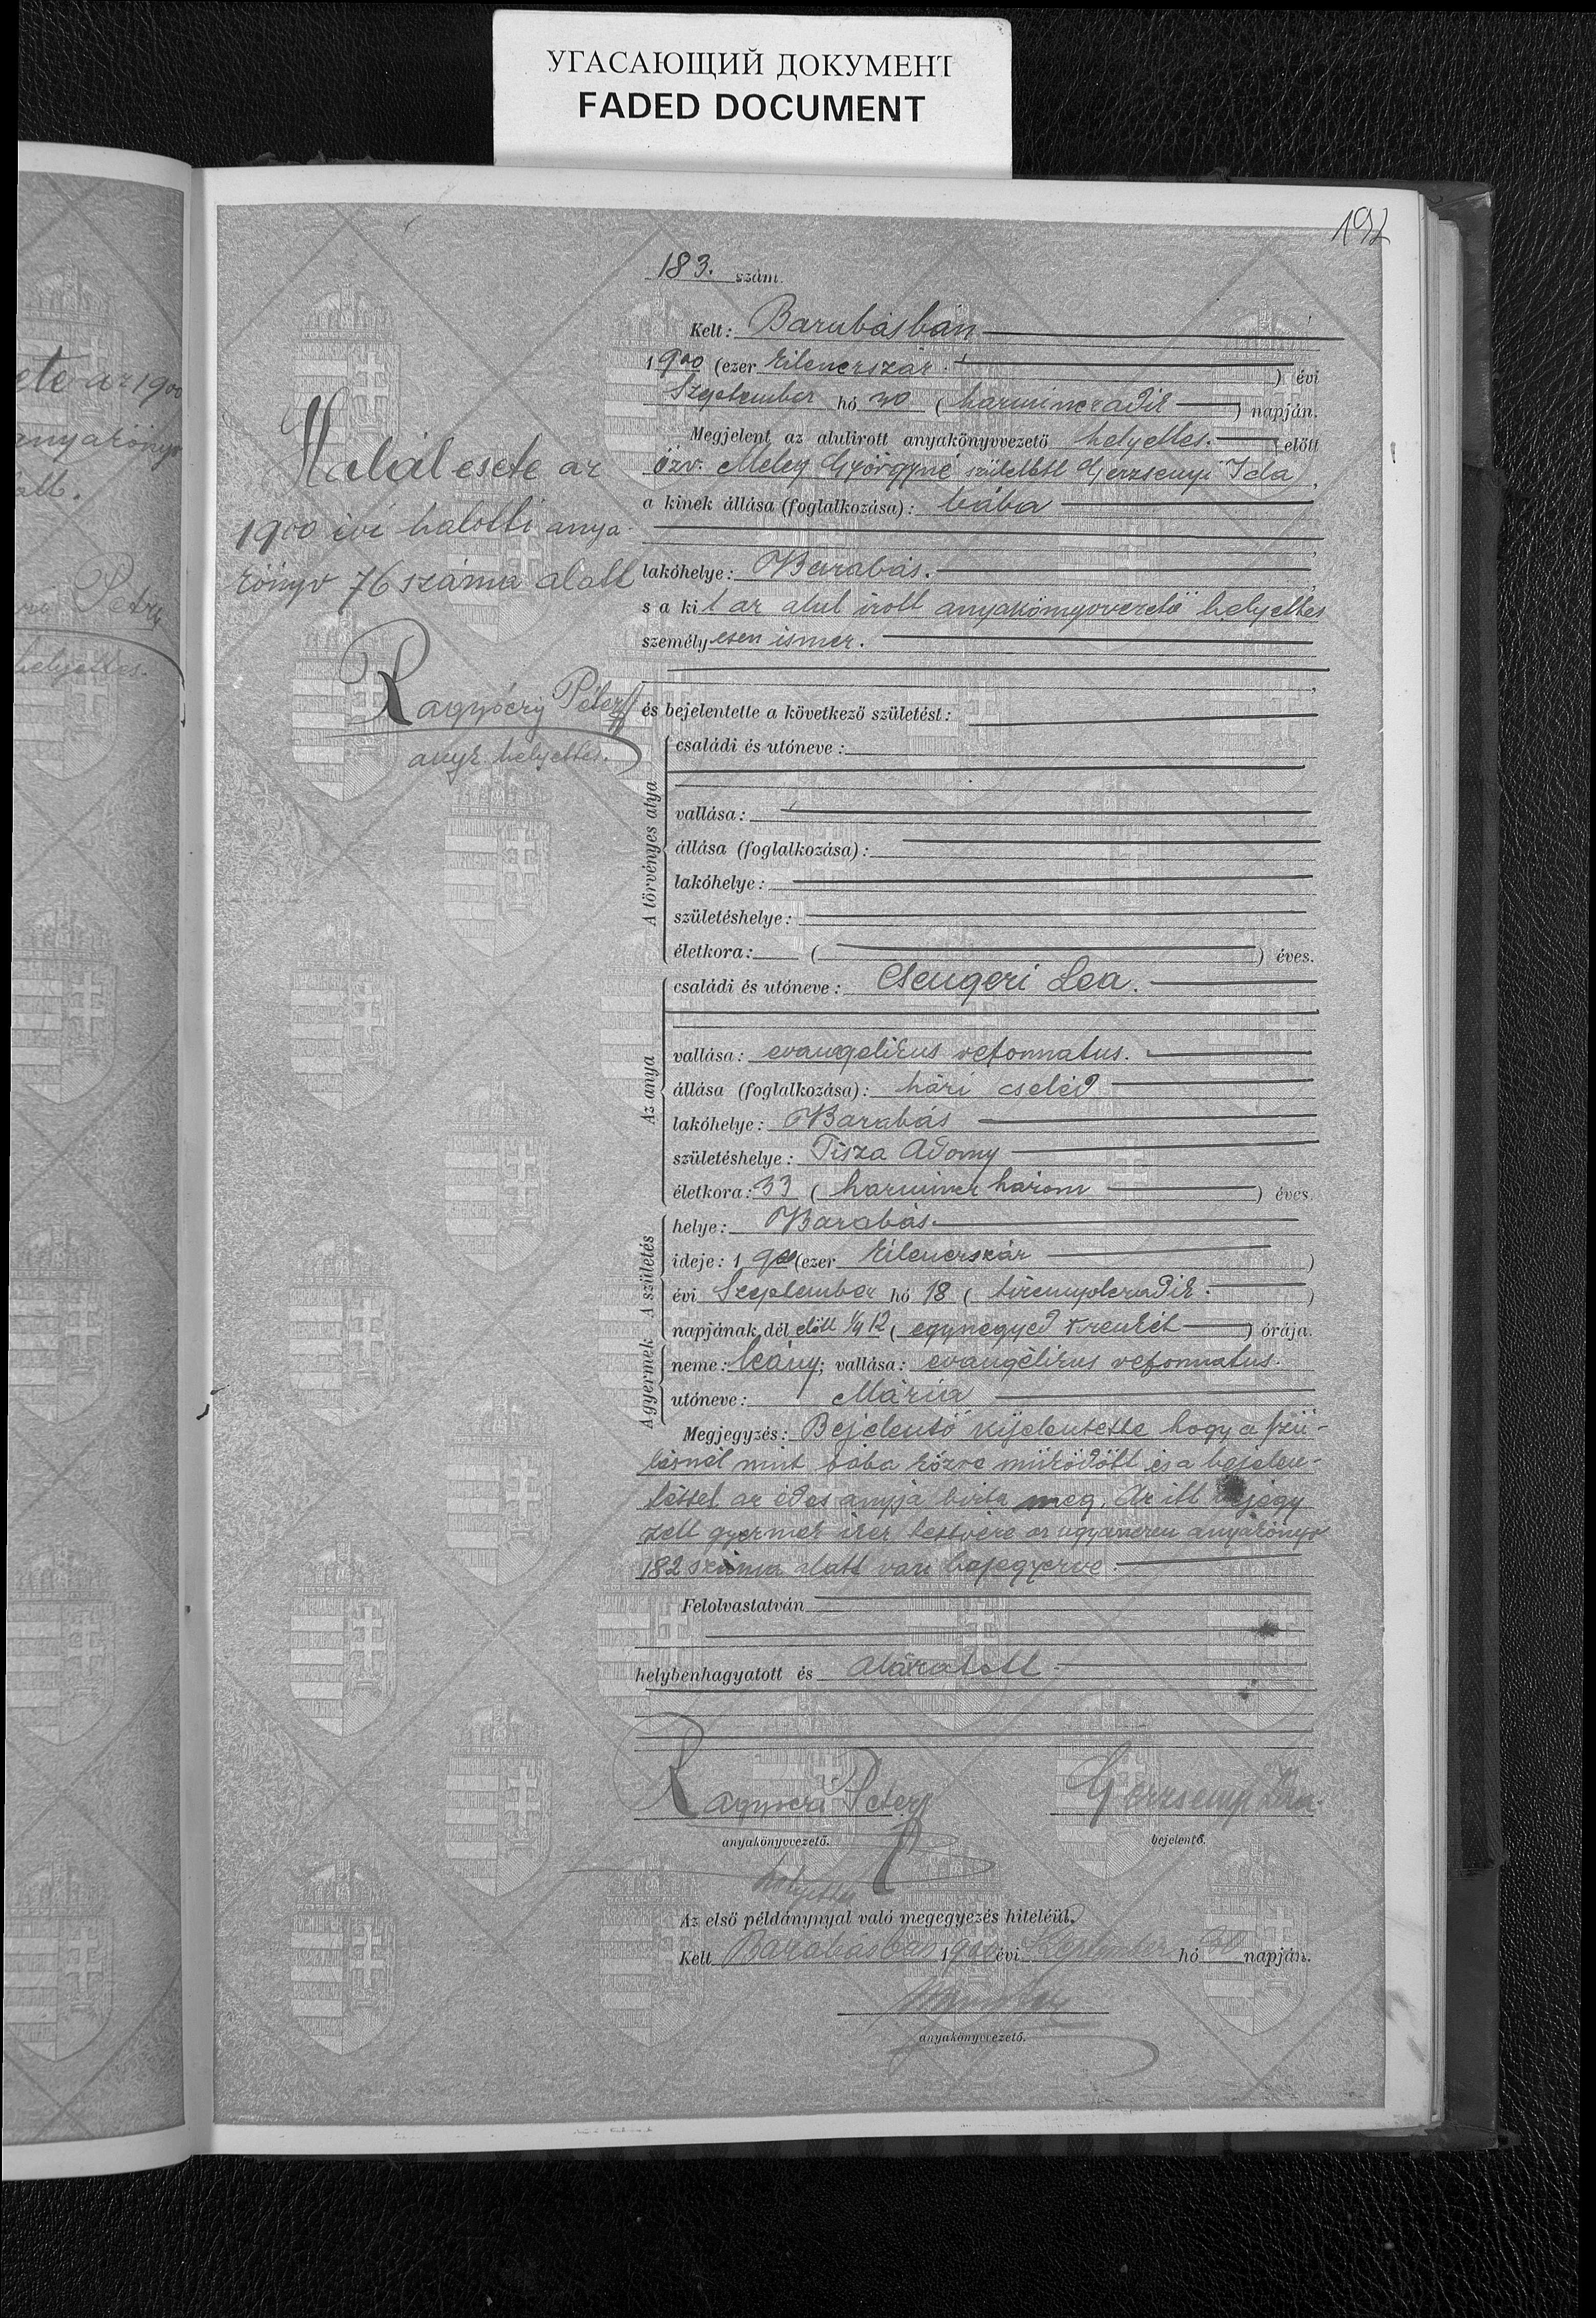 УГАСАЮЩИЙ ДОКУМЕНТ
FADED DOCUMENT
ete az 1900
anyakönyv
alt.
Petry
helyettes.
183. szám.
Kelt: Barabásban
1900 (ezer kilencszáz.) évi
Szeptember hó 30 (harmincadik) napján.
Megjelent az alulirott anyakönyvvezető helyettes. előtt
özv. Meley Györgyné született Gerzsenyi Ida,
a kinek állása (foglalkozása): bába
lakóhelye: Barabás.
s a kit az alul irott anyakönyvvezető helyettes
személyesen ismer.
és bejelentette a következő születést:
Halálesete az
1900 évi halotti anya-
könyv 76 száma alatt
Ragyóczy Péter
anyk. helyettes.
A törvényes atya
családi és utóneve:
vallása:
állása (foglalkozása):
lakóhelye:
születéshelye:
életkora: ( ) éves.
Az anya
családi és utóneve: Csengeri Lea.
vallása: evangelikus reformatus.
állása (foglalkozása): házi cseléd
lakóhelye: Barabás
születéshelye: Tisza Adony
életkora: 33 (harminc három) éves.
A születés
helye: Barabás
ideje: 1900 (ezer kilencszáz)
évi Szeptember hó 18 (tizennyolcadik.)
napjának dél előtt 1/4 12 (egynegyed tizenkét) órája.
A gyermek
neme: leány; vallása: evangélikus reformatus.
utóneve: Mária
Megjegyzés: Bejelentő kijelentette hogy a szü-
lésnél mint bába közre működött és a bejelen-
téssel az édes anyja bizta meg. Az itt bejegy
zett gyermek iker testvére az ugyanezen anyakönyv
182 száma alatt van bejegyezve.
Felolvastatván
helybenhagyatott és aláiratott.
Ragyóczi Péter
Gerzsenyi Ida.
anyakönyvvezető.
bejelentő.
helyettes
Az első példánynyal való megegyezés hiteléül.
Kelt Barabásban 1900 évi Szeptember hó 30 napján.
anyakönyvvezető.